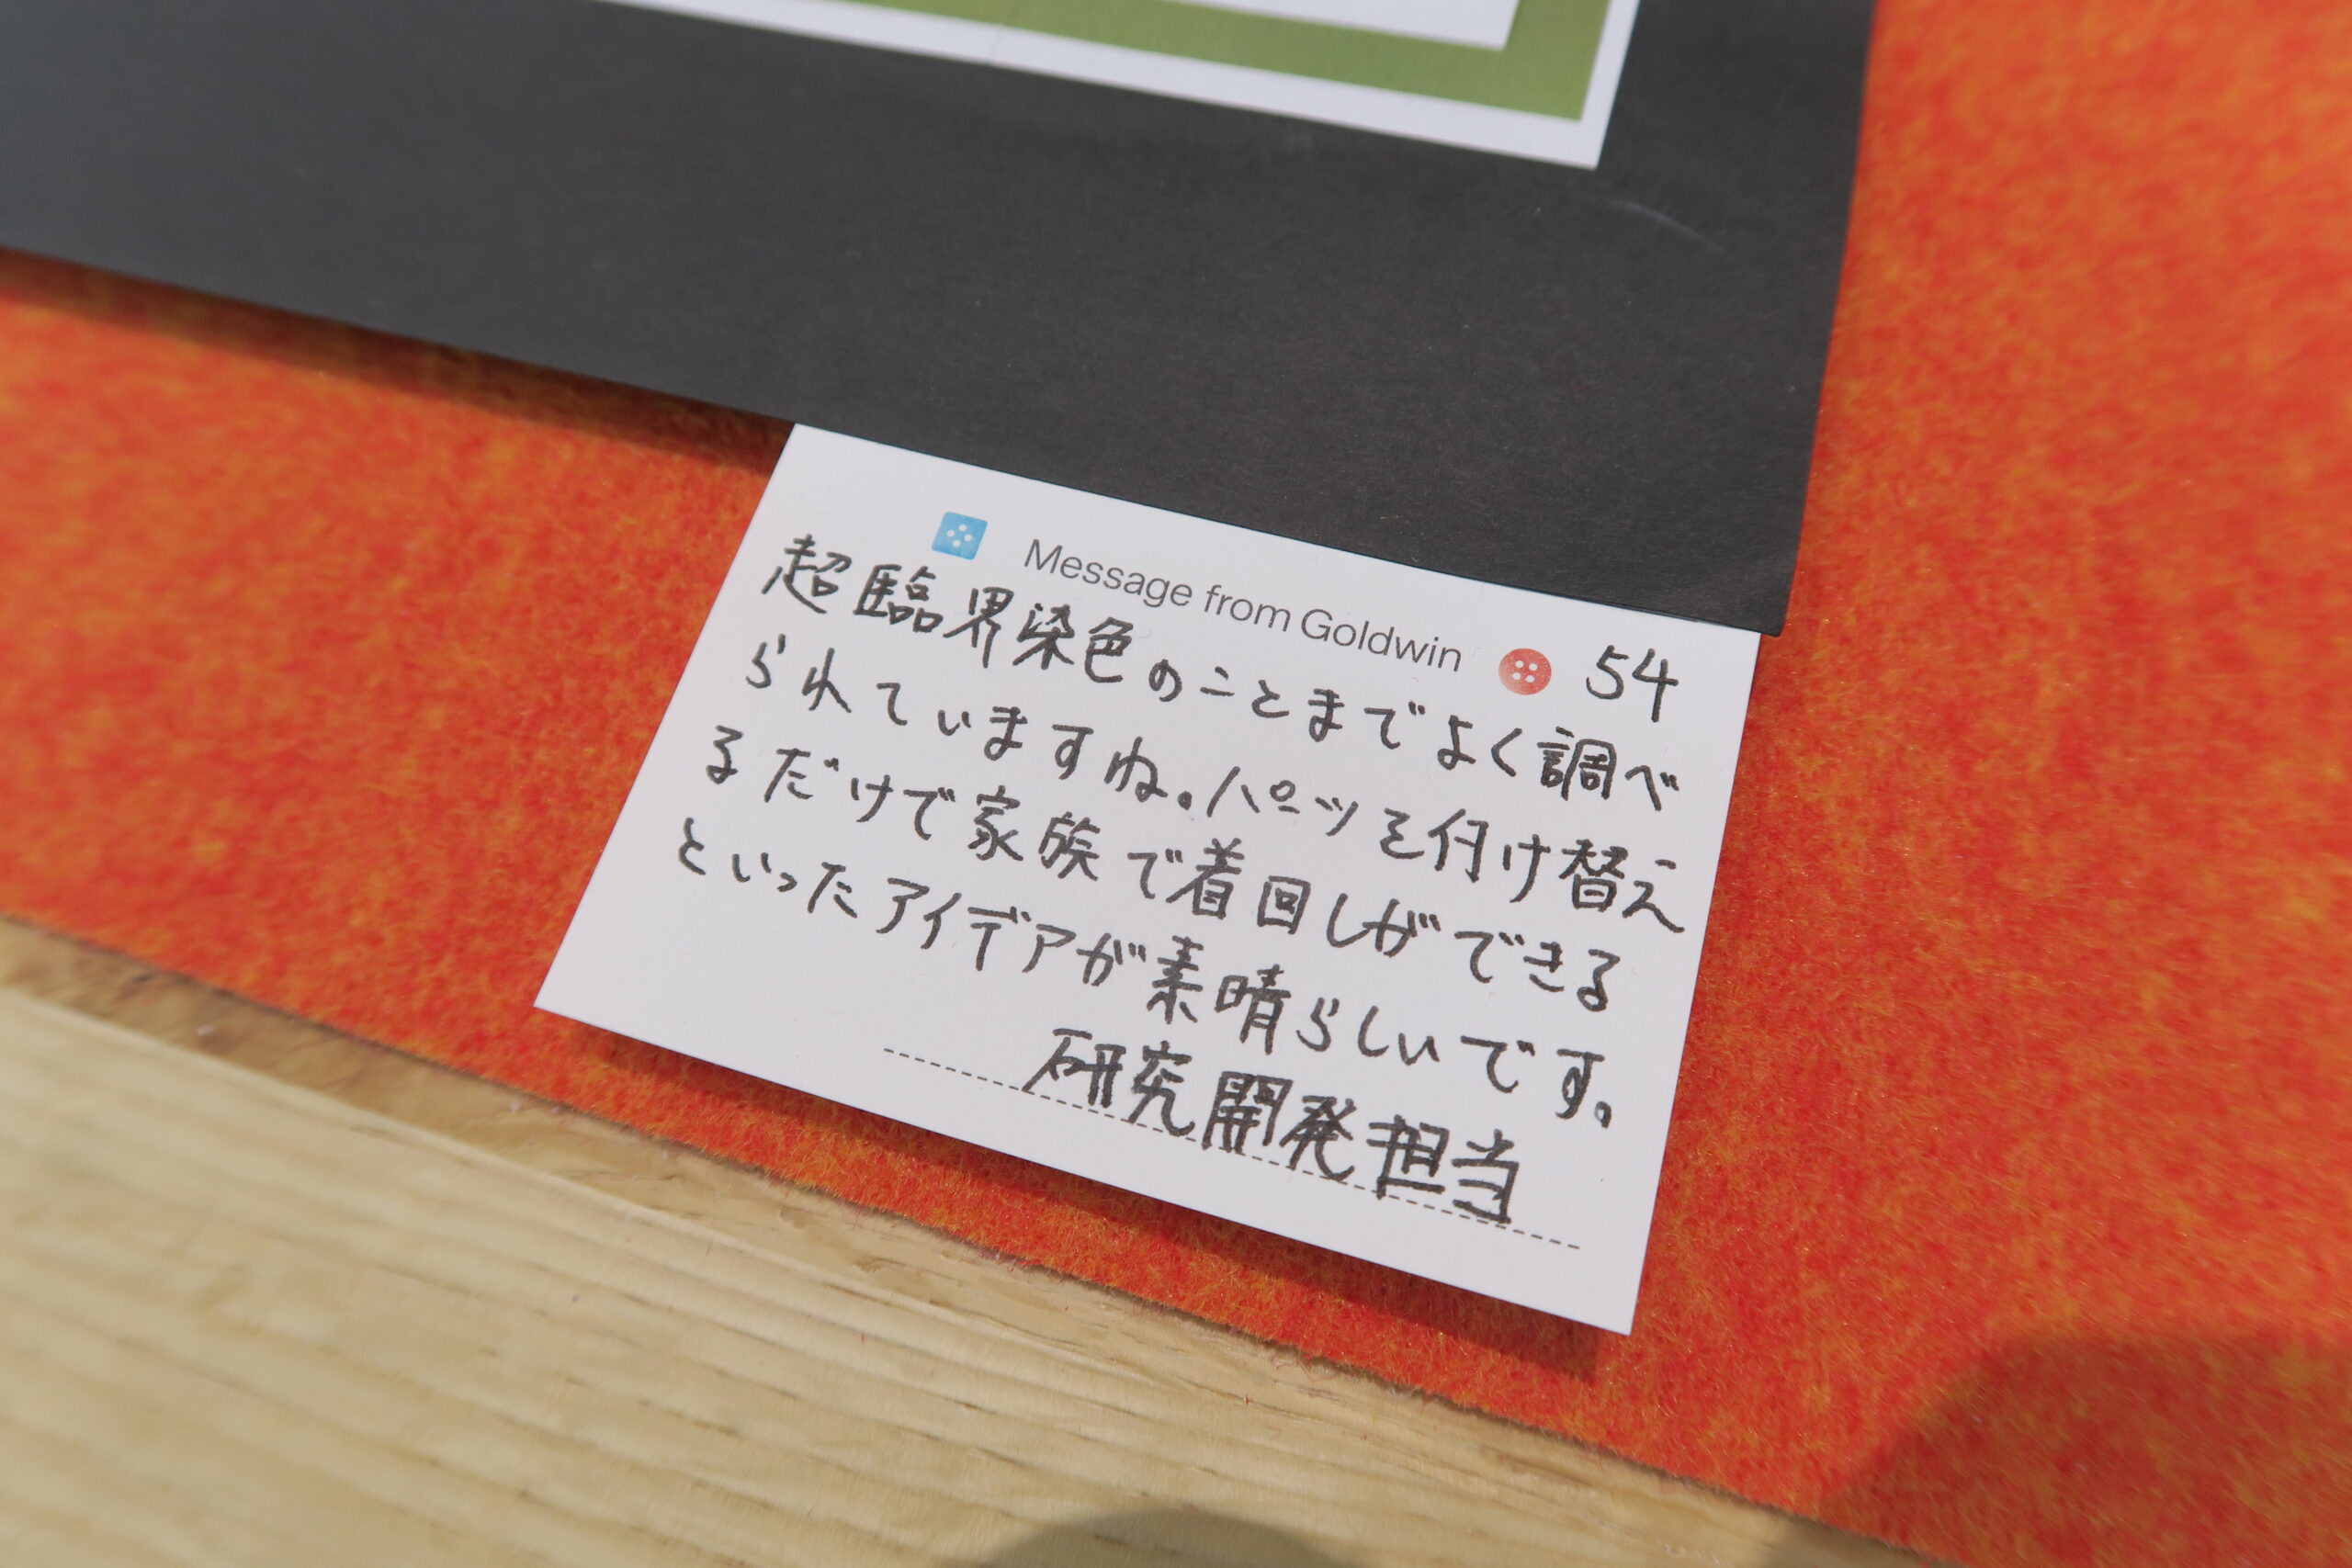 Message from Goldwin
54
超臨界染色のことまでよく調べ
られていますね。パーツを付け替え
るだけで家族で着回しができる
といったアイデアが素晴らしいです。
研究開発担当